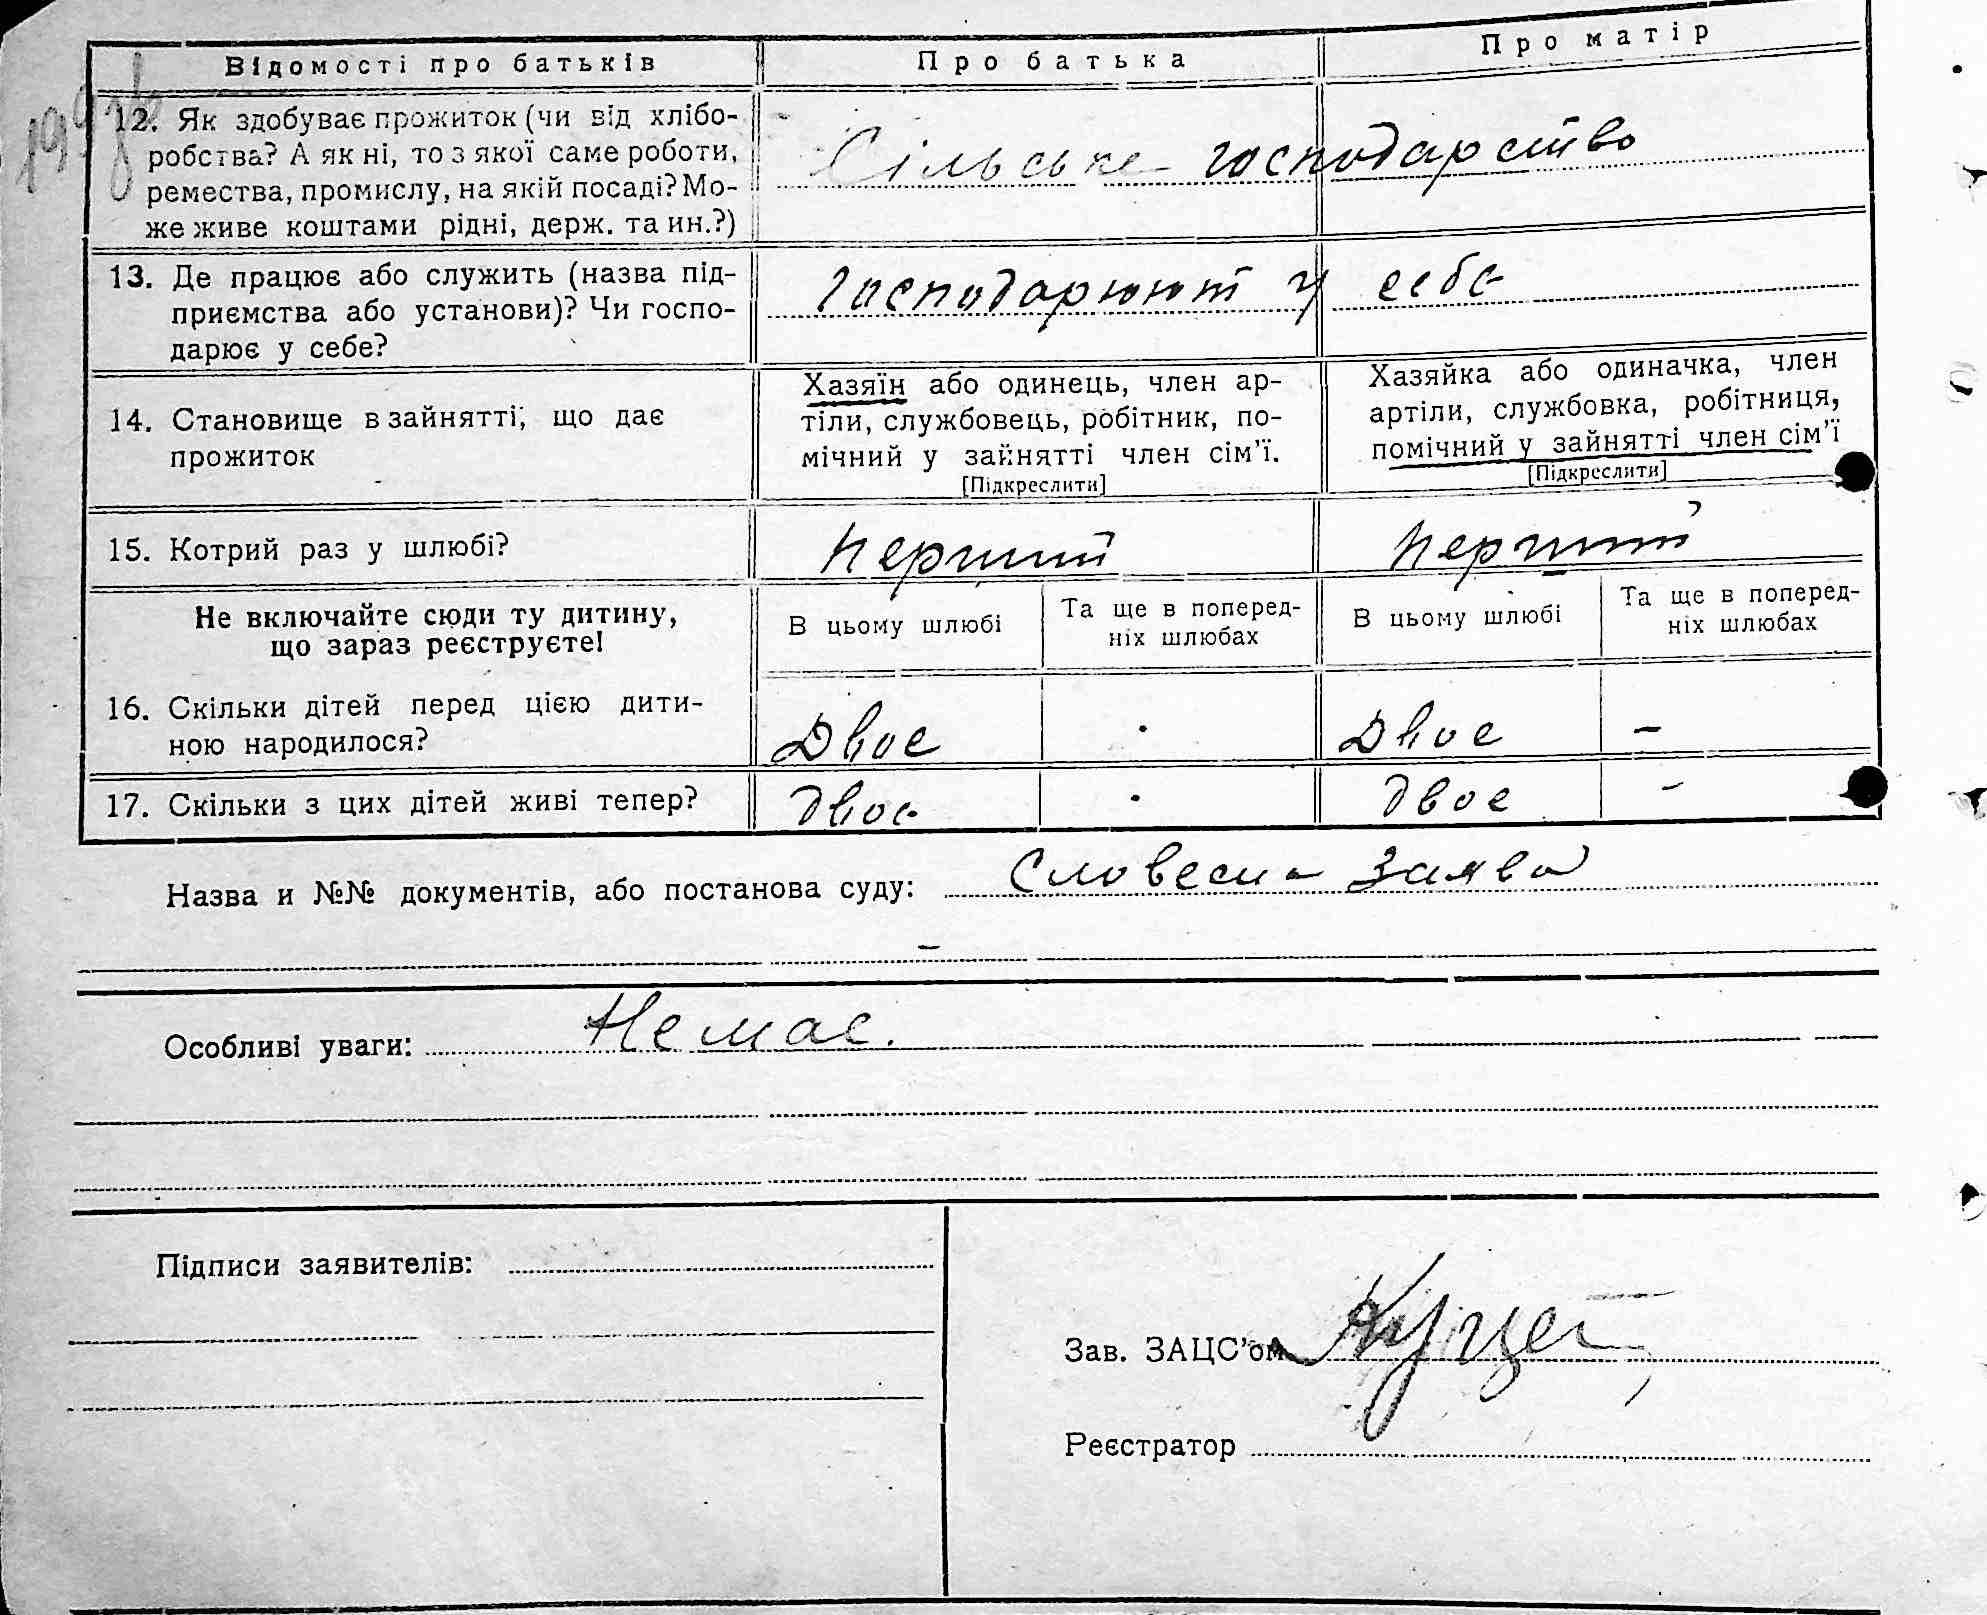 Відомості про батьків Про батька Про матір
12. Як здобуває прожиток (чи від хлібо-
робства? А як ні, то з якої саме роботи,
ремества, промислу, на якій посаді? Мо-
же живе коштами рідні, держ. та ин.?)
Сільське господарство
13. Де працює або служить (назва під-
приємства або установи)? Чи госпо-
дарює у себе?
господарюют у себе
14. Становище в зайнятті, що дає
прожиток
Хазяїн або одинець, член ар-
тіли, службовець, робітник, по-
мічний у зайнятті член сім'ї.
[Підкреслити]
Хазяйка або одиначка, член
артіли, службовка, робітниця,
помічний у зайнятті член сім'ї
[Підкреслити]
15. Котрий раз у шлюбі? перший перший
Не включайте сюди ту дитину,
що зараз реєструєте!
В цьому шлюбі
Та ще в поперед-
ніх шлюбах
В цьому шлюбі
Та ще в поперед-
ніх шлюбах
16. Скільки дітей перед цією дити-
ною народилося?
Двоє Двоє -
17. Скільки з цих дітей живі тепер? двоє двоє -
Назва и №№ документів, або постанова суду: Словесна заява
-
Особливі уваги: Немає.
Підписи заявителів:
Зав. ЗАЦС'ом
Реєстратор